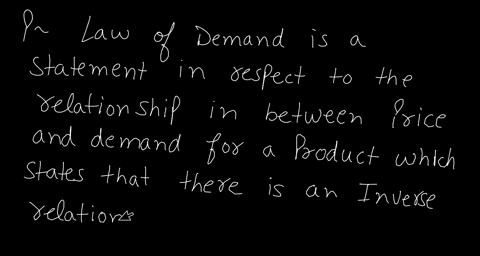 Law of Demand is a
Statement in respect to the
relationship in between Price
and demand for a Product which
States that there is an Inverse
relation